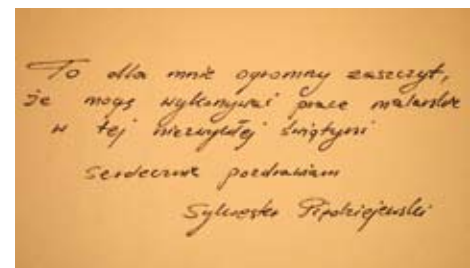 To dla mnie ogromny zaszczyt,
że mogę wykonywać prace malarskie
w tej niezwykłej świątyni
Serdecznie pozdrawiam
Sylwester